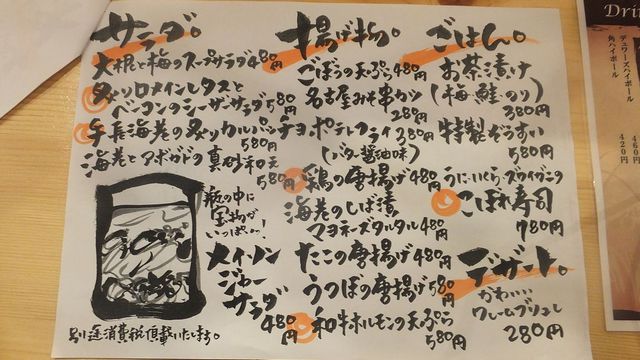 サラダ。
大根と梅のスープサラダ 480円
炙りロメインレタスと
ベーコンのシーザーサラダ 580円
手長海老の炙りカルパッチョ 580円
海老とアボカドの真砂和え 580円
瓶の中に
宝物が
いっぱい〜!
メイソン
ジャー
サラダ
480円
別途消費税頂戴いたします。
揚げ物。
ごぼうの天ぷら 480円
名古屋みそ串カツ
280円
ポテトフライ 380円
(バター醤油味)
鶏の唐揚げ 480円
海老のしば漬
マヨネーズタルタル 480円
たこの唐揚げ 480円
うつぼの唐揚げ 580円
和牛ホルモンの天ぷら
580円
ごはん。
お茶漬け
(梅、鮭、のり)
380円
特製ぞうすい
580円
うに・いくら・ズワイガニの
こぼれ寿司
780円
デザート。
かわいい
クレームブリュレ
280円
Drin
デュワーズハイボール
460円
角ハイボール
420円